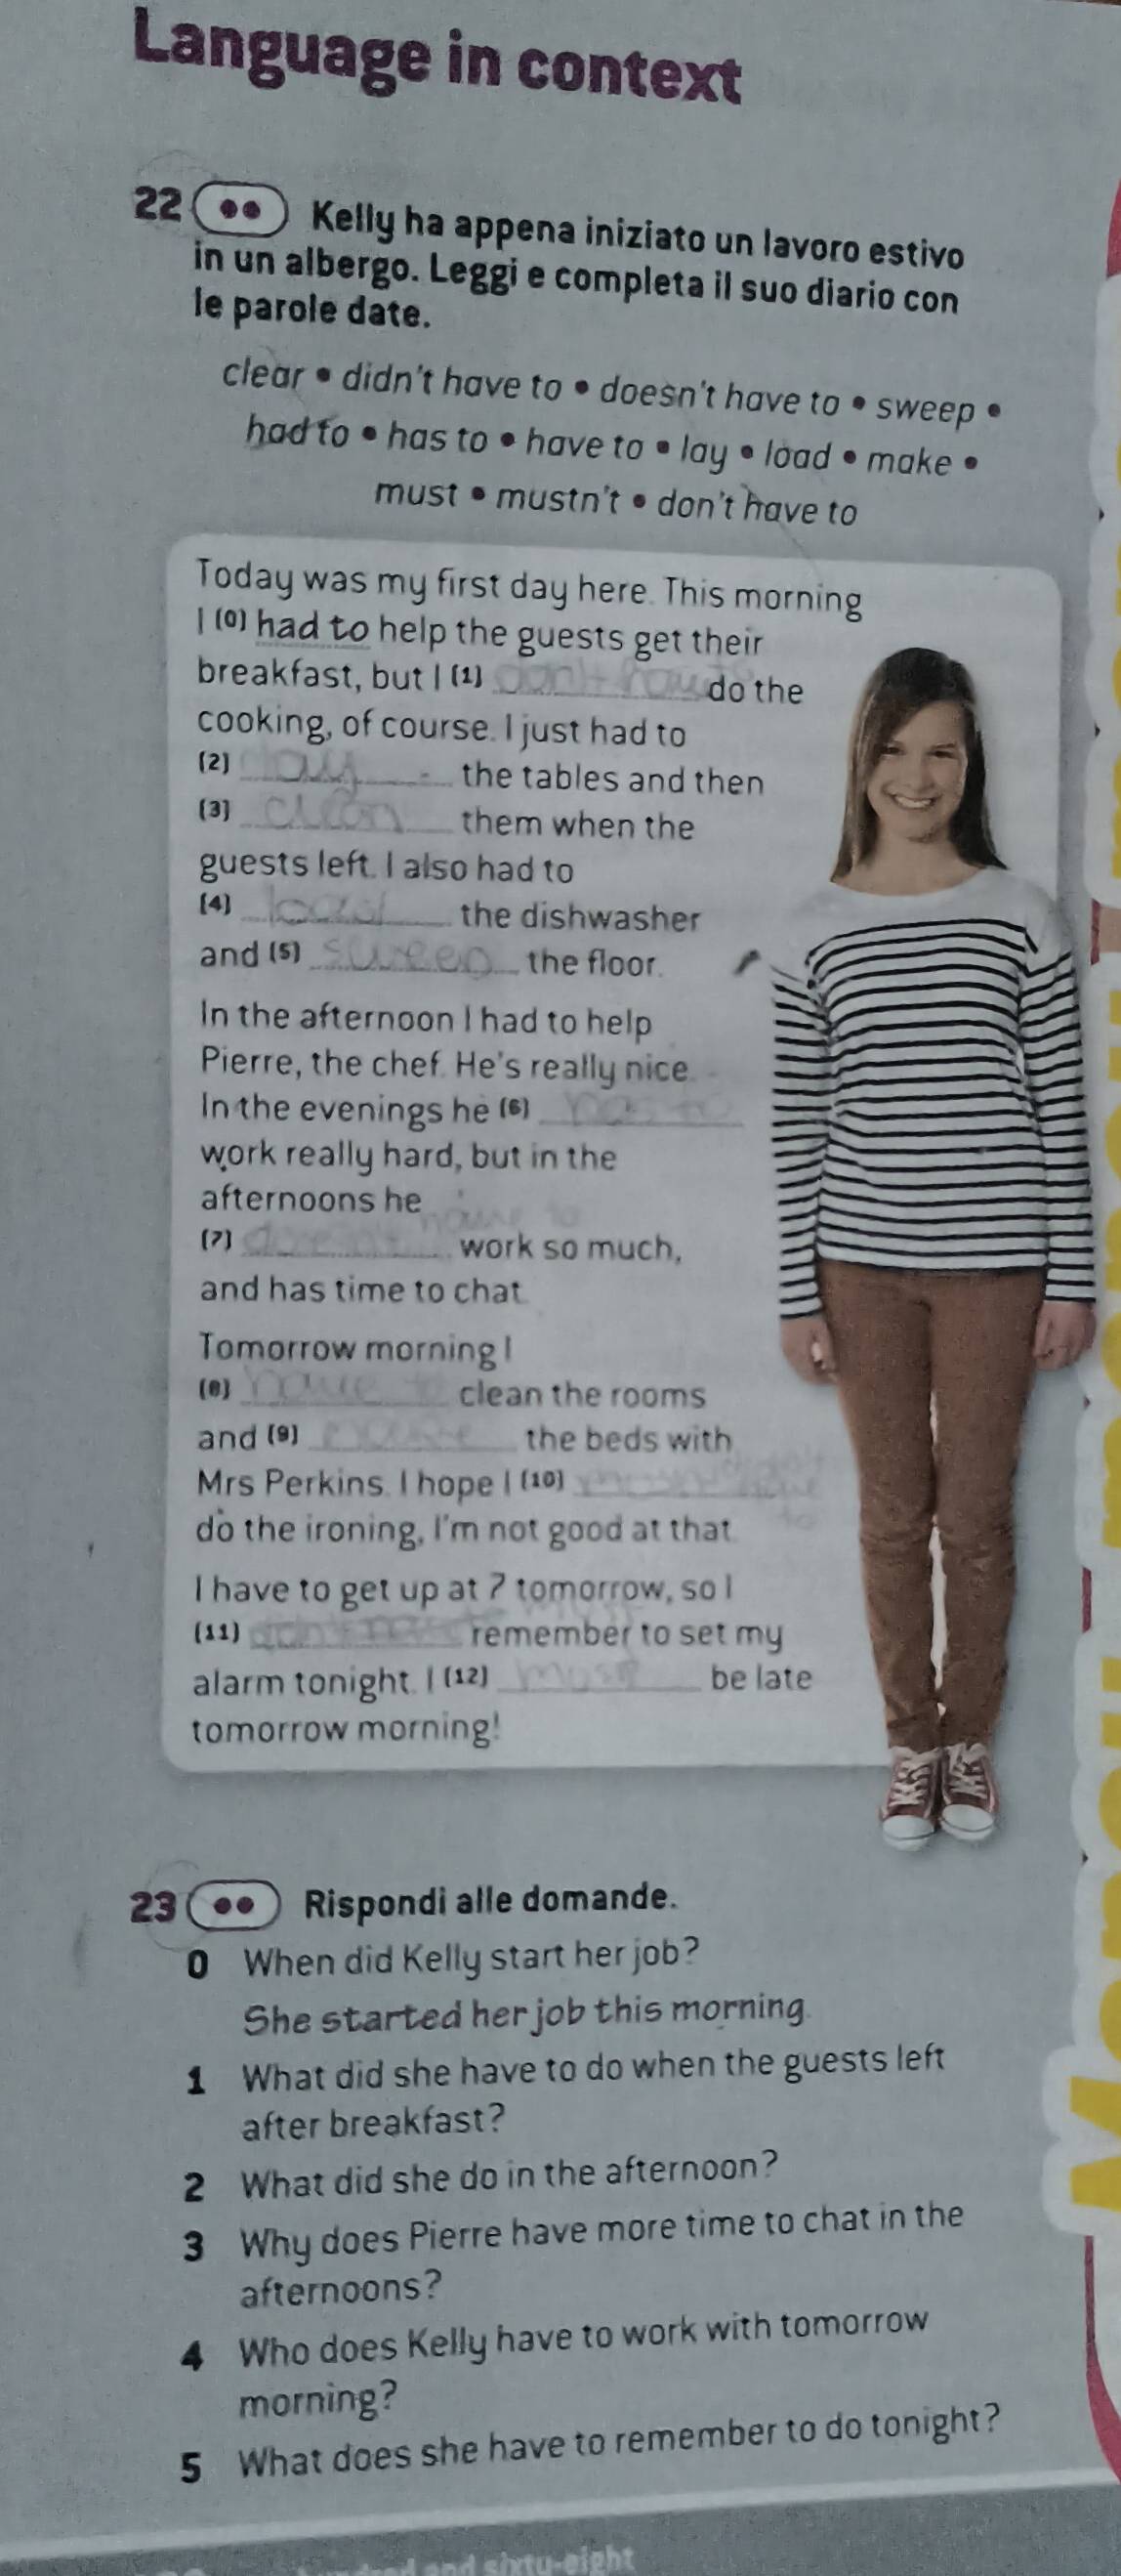 Language in context
22 •• Kelly ha appena iniziato un lavoro estivo
in un albergo. Leggi e completa il suo diario con
le parole date.
clear • didn't have to • doesn't have to • sweep •
had to • has to • have to • lay • load • make •
must • mustn't • don't have to
Today was my first day here. This morning
I (0) had to help the guests get their
breakfast, but I (1) don't have to do the
cooking, of course. I just had to
(2) lay the tables and then
(3) clean them when the
guests left. I also had to
(4) load the dishwasher
and (5) sweep the floor.
In the afternoon I had to help
Pierre, the chef. He's really nice.
In the evenings he (6) has to
work really hard, but in the
afternoons he
(7) doesn't have to work so much,
and has time to chat.
Tomorrow morning I
(8) have to clean the rooms
and (9) make the beds with
Mrs Perkins. I hope I (10)
do the ironing, I'm not good at that.
I have to get up at 7 tomorrow, so I
(11) must remember to set my
alarm tonight. I (12) be late
tomorrow morning!
23 •• Rispondi alle domande.
0 When did Kelly start her job?
She started her job this morning.
1 What did she have to do when the guests left
after breakfast?
2 What did she do in the afternoon?
3 Why does Pierre have more time to chat in the
afternoons?
4 Who does Kelly have to work with tomorrow
morning?
5 What does she have to remember to do tonight?
hundred and sixty-eight